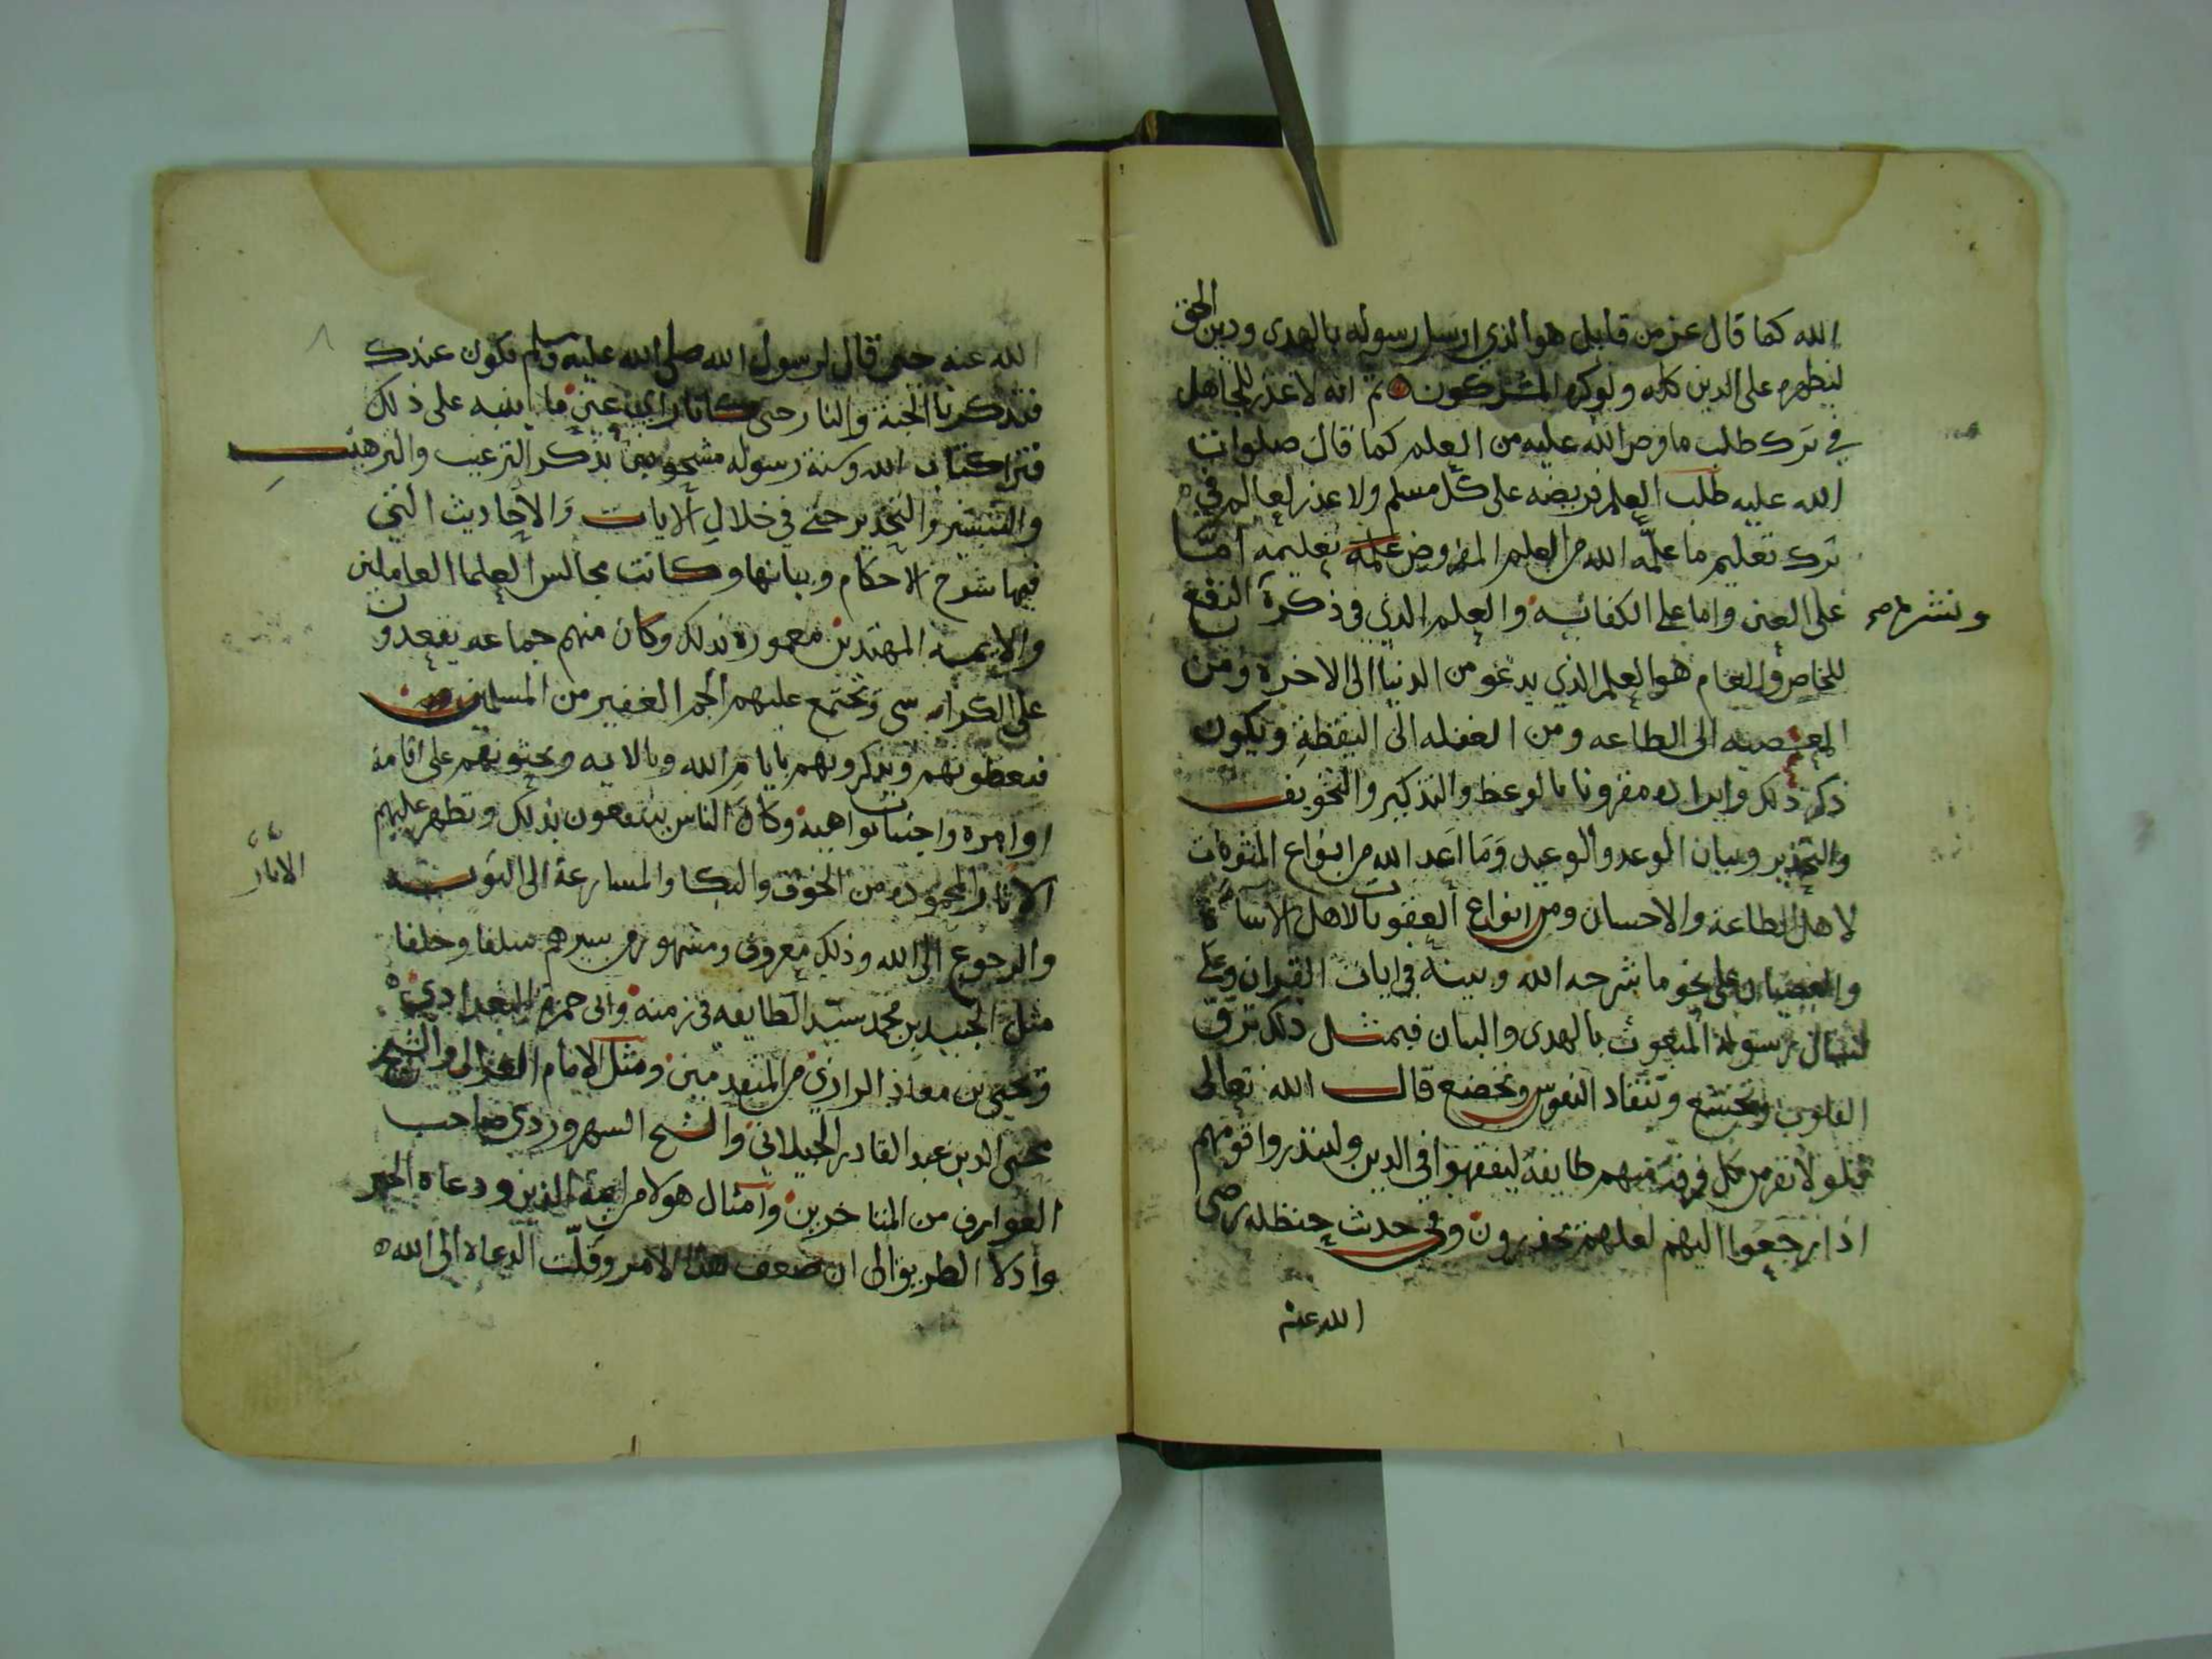 الله كما قال عز من قايل هو الذي ارسل رسوله بالهدى ودين الحق
ليظهره على الدين كله ولو كره المشركون ثم انه لا عذر للجاهل
في ترك طلب ما فرض الله عليه من العلم كما قال صلوات
الله عليه طلب العلم فريضه على كل مسلم ولا عذر لعالم في
ترك تعليم ما علمه الله من العلم المفروض عليه تعليمه اما
على العين واما على الكفائيه والعلم الذي في ذكره النفع
ونشره صح
للخاص والعام هو العلم الذي يدعو من الدنيا الى الاخرة ومن
المعصيه الى الطاعه ومن الغفله الى اليقظة ويكون
ذكر ذلك وايراده مقرونا بالوعظ والتذكير والتخويف
والتحذير وبيان الوعد والوعيد وما اعد الله من انواع المثوبات
لاهل الطاعة والاحسان ومن انواع العقوبات لاهل الاساة
والعصيان على نحو ما شرحه الله وبينه في ايات القران وعلى
لسان رسوله المبعوث بالهدى والبيان فبمثل ذلك ترق
القلوب وتخشع وتنقاد النفوس وتخضع قال الله تعالى
فلولا نفر من كل فرقة منهم طايفة ليتفقهوا في الدين ولينذروا قومهم
اذا رجعوا اليهم لعلهم يحذرون وفي حديث حنظله رضي
الله عنه
الله عنه حين قال لرسول الله صلى الله عليه وسلم نكون عندك
فتذكرنا الجنة والنار حتى كانا راي عين ما ينبه على ذلك
فترا كتاب الله وسنة رسوله مشحونين بذكر الترغيب والترهيب
والتبشير والتحذير حتى في خلال الايات والاحاديث التي
فيها شرح الاحكام وبيانها وكانت مجالس العلما العاملين
والايمه المهتدين معموره بذلك وكان منهم جماعه يقعدون
على الكراسي ويجتمع عليهم الجم الغفير من المسلمين
فيعظونهم ويذكرونهم بايام الله وبالايه ويحثونهم على اقامة
اوامره واجتناب نواهيه وكان الناس ينتفعون بذلك وتظهر عليهم
الاثار المحموده من الخوف والبكا والمسارعة الى التوبه
الاثار
والرجوع الى الله وذلك معروف ومشهور من سيرهم سلفا وخلفا
مثل الجنيد بن محمد سيد الطايفه في زمنه وابي حمزة البغدادي
ويحيى بن معاذ الرازي من المتقدمين ومثل الامام الغزالي والشيخ
محيى الدين عبد القادر الجيلاني والشيخ السهروردي صاحب
العوارف من المتاخرين وامثال هولا من ايمة الدين ودعاة الخير
وادلا الطريق الى ان ضعف هذا الامر وقلت الدعاة الى الله